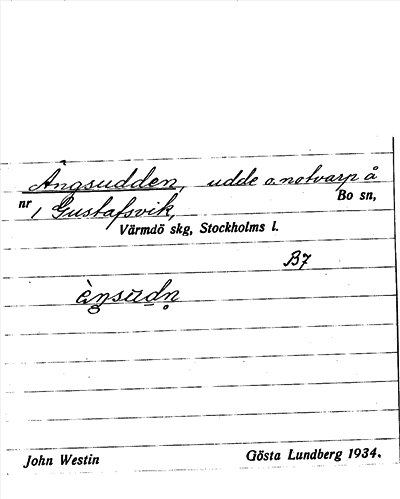 Ängsudden, udde o. notvarp å
nr 1 Gustafsvik, Bo sn,
Värmdö skg, Stockholms l.
B7
John Westin Gösta Lundberg 1934.